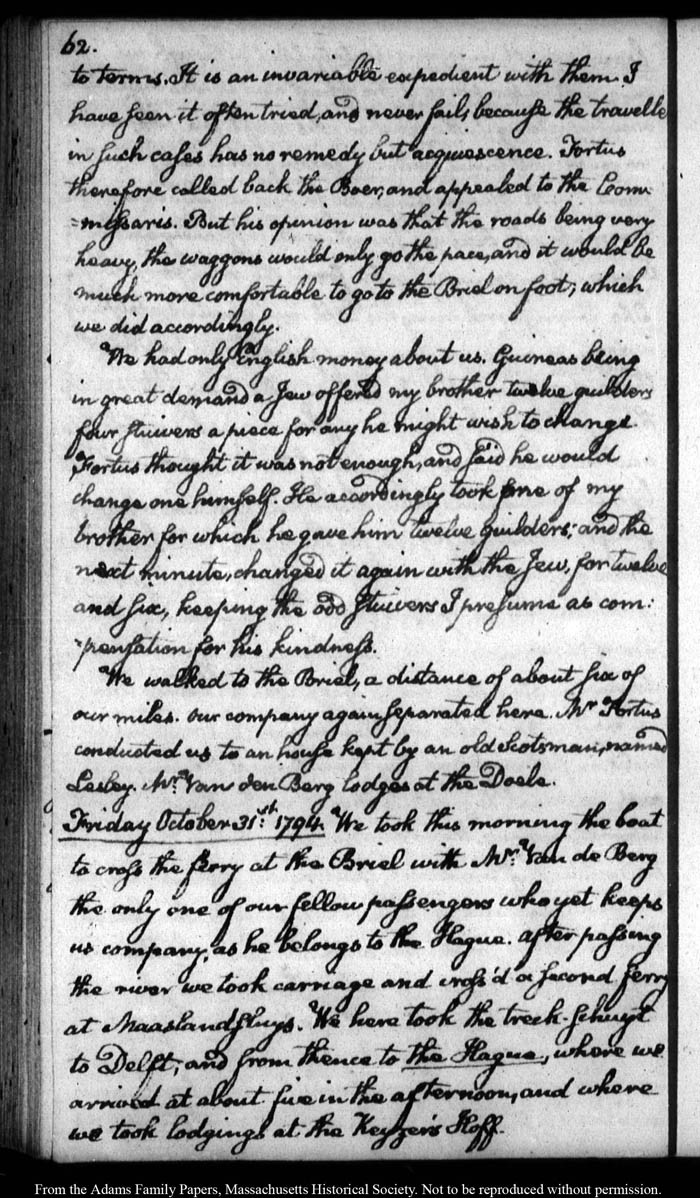 62.
to terms. It is an invariable expedient with them. I
have seen it often tried, and never fails, because the travelle
in such cases has no remedy but acquiescence. Fortus
therefore called back the Boer, and appealed to the Com:
=missaris. But his opinion was that the roads being very
heavy, the waggons would only go the pace, and it would be
much more comfortable to go to the Briel on foot; which
we did accordingly.
We had only English money about us. Guineas being
in great demand a Jew offered my brother twelve guilders
four stuivers a piece for any he might wish to change.
Fortus thought it was not enough, and said he would
change one himself. He accordingly took one of my
brother for which he gave him twelve guilders; and the
next minute, changed it again with the Jew, for twelve
and six, keeping the odd stuivers I presume as com:
-pensation for his kindness.
We walked to the Briel, a distance of about six of
our miles. Our company again separated here. Mr. Fortus
conducted us to an house kept by an old Scotsman, named
Lesley. Mr. Van den Berg lodges at the Doele.
Friday October 31st: 1794. We took this morning the boat
to cross the ferry at the Briel with Mr. Van de Berg
the only one of our fellow passengers who yet keeps
us company, as he belongs to the Hague. After passing
the river we took carriage and cross'd a second ferry
at Maaslandsluys. We here took the treck-schuyt
to Delft; and from thence to the Hague, where we
arrived at about five in the afternoon, and where
we took lodgings at the Keyzer's Hoff.
From the Adams Family Papers, Massachusetts Historical Society. Not to be reproduced without permission.